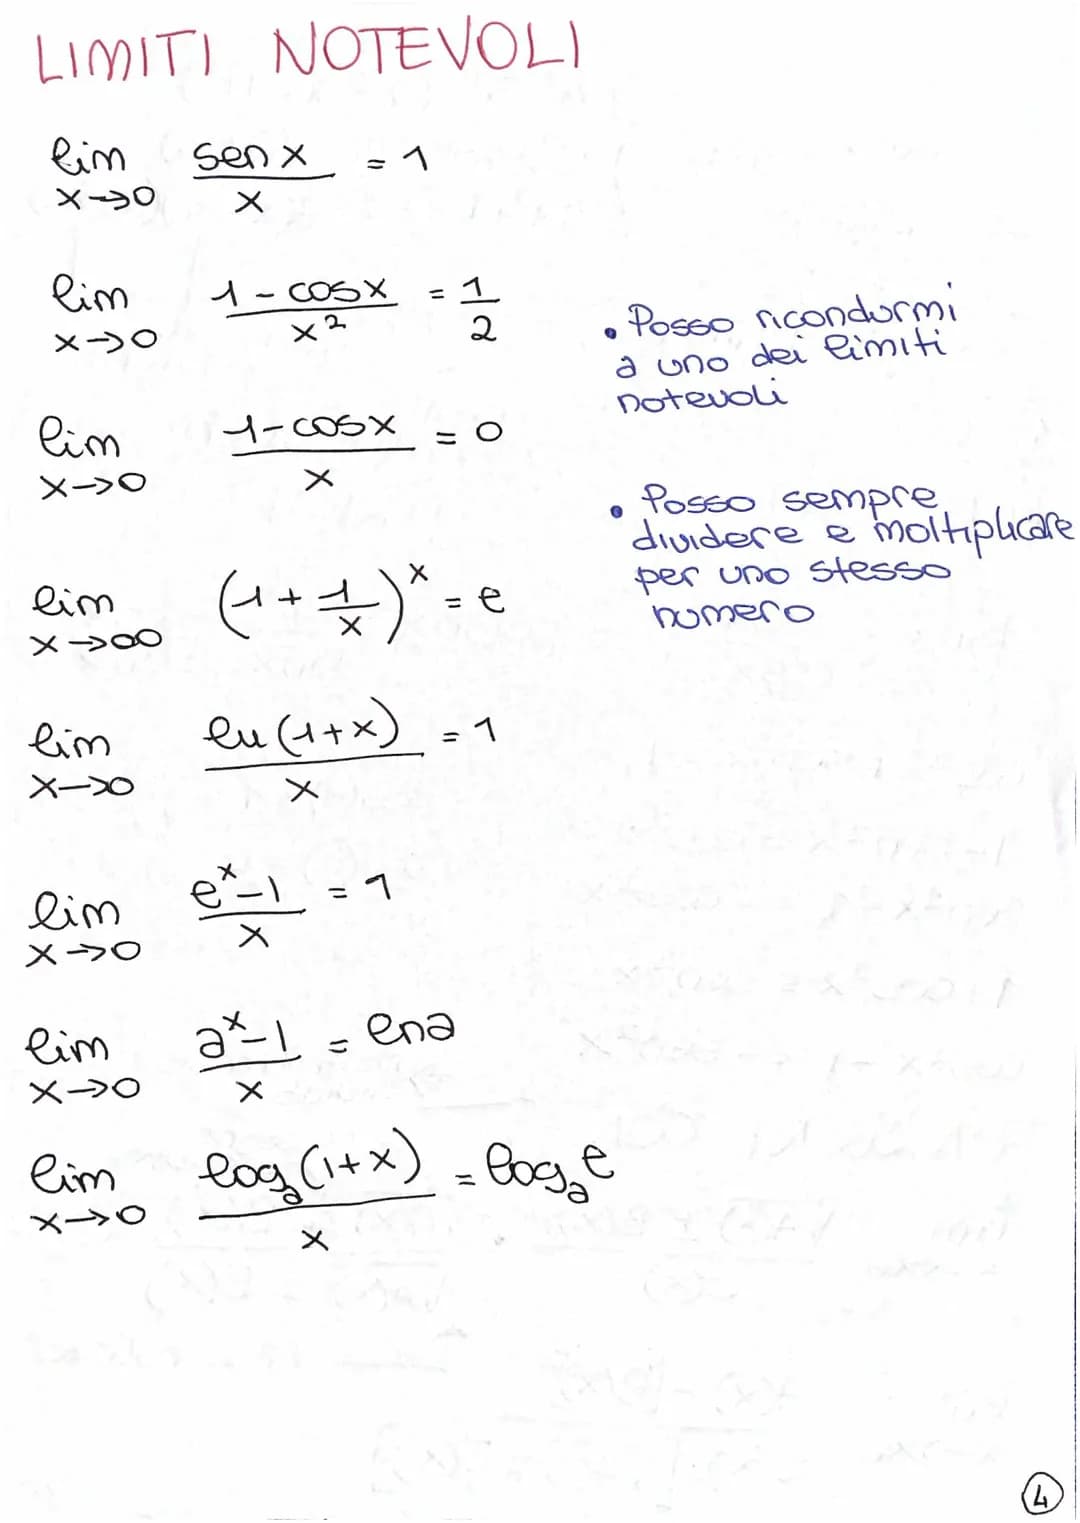 LIMITI NOTEVOLI
lim x→0 sen x / x = 1
lim x→0 1 - cosx / x² = 1/2
lim x→0 1-cosx / x = 0
lim x→∞ (1 + 1/x)^x = e
lim x→0 ln (1+x) / x = 1
lim x→0 e^x-1 / x = 1
lim x→0 a^x-1 / x = lna
lim x→0 log_a (1+x) / x = log_a e
• Posso ricondurmi
a uno dei limiti
notevoli
• Posso sempre
dividere e moltiplicare
per uno stesso
numero
4